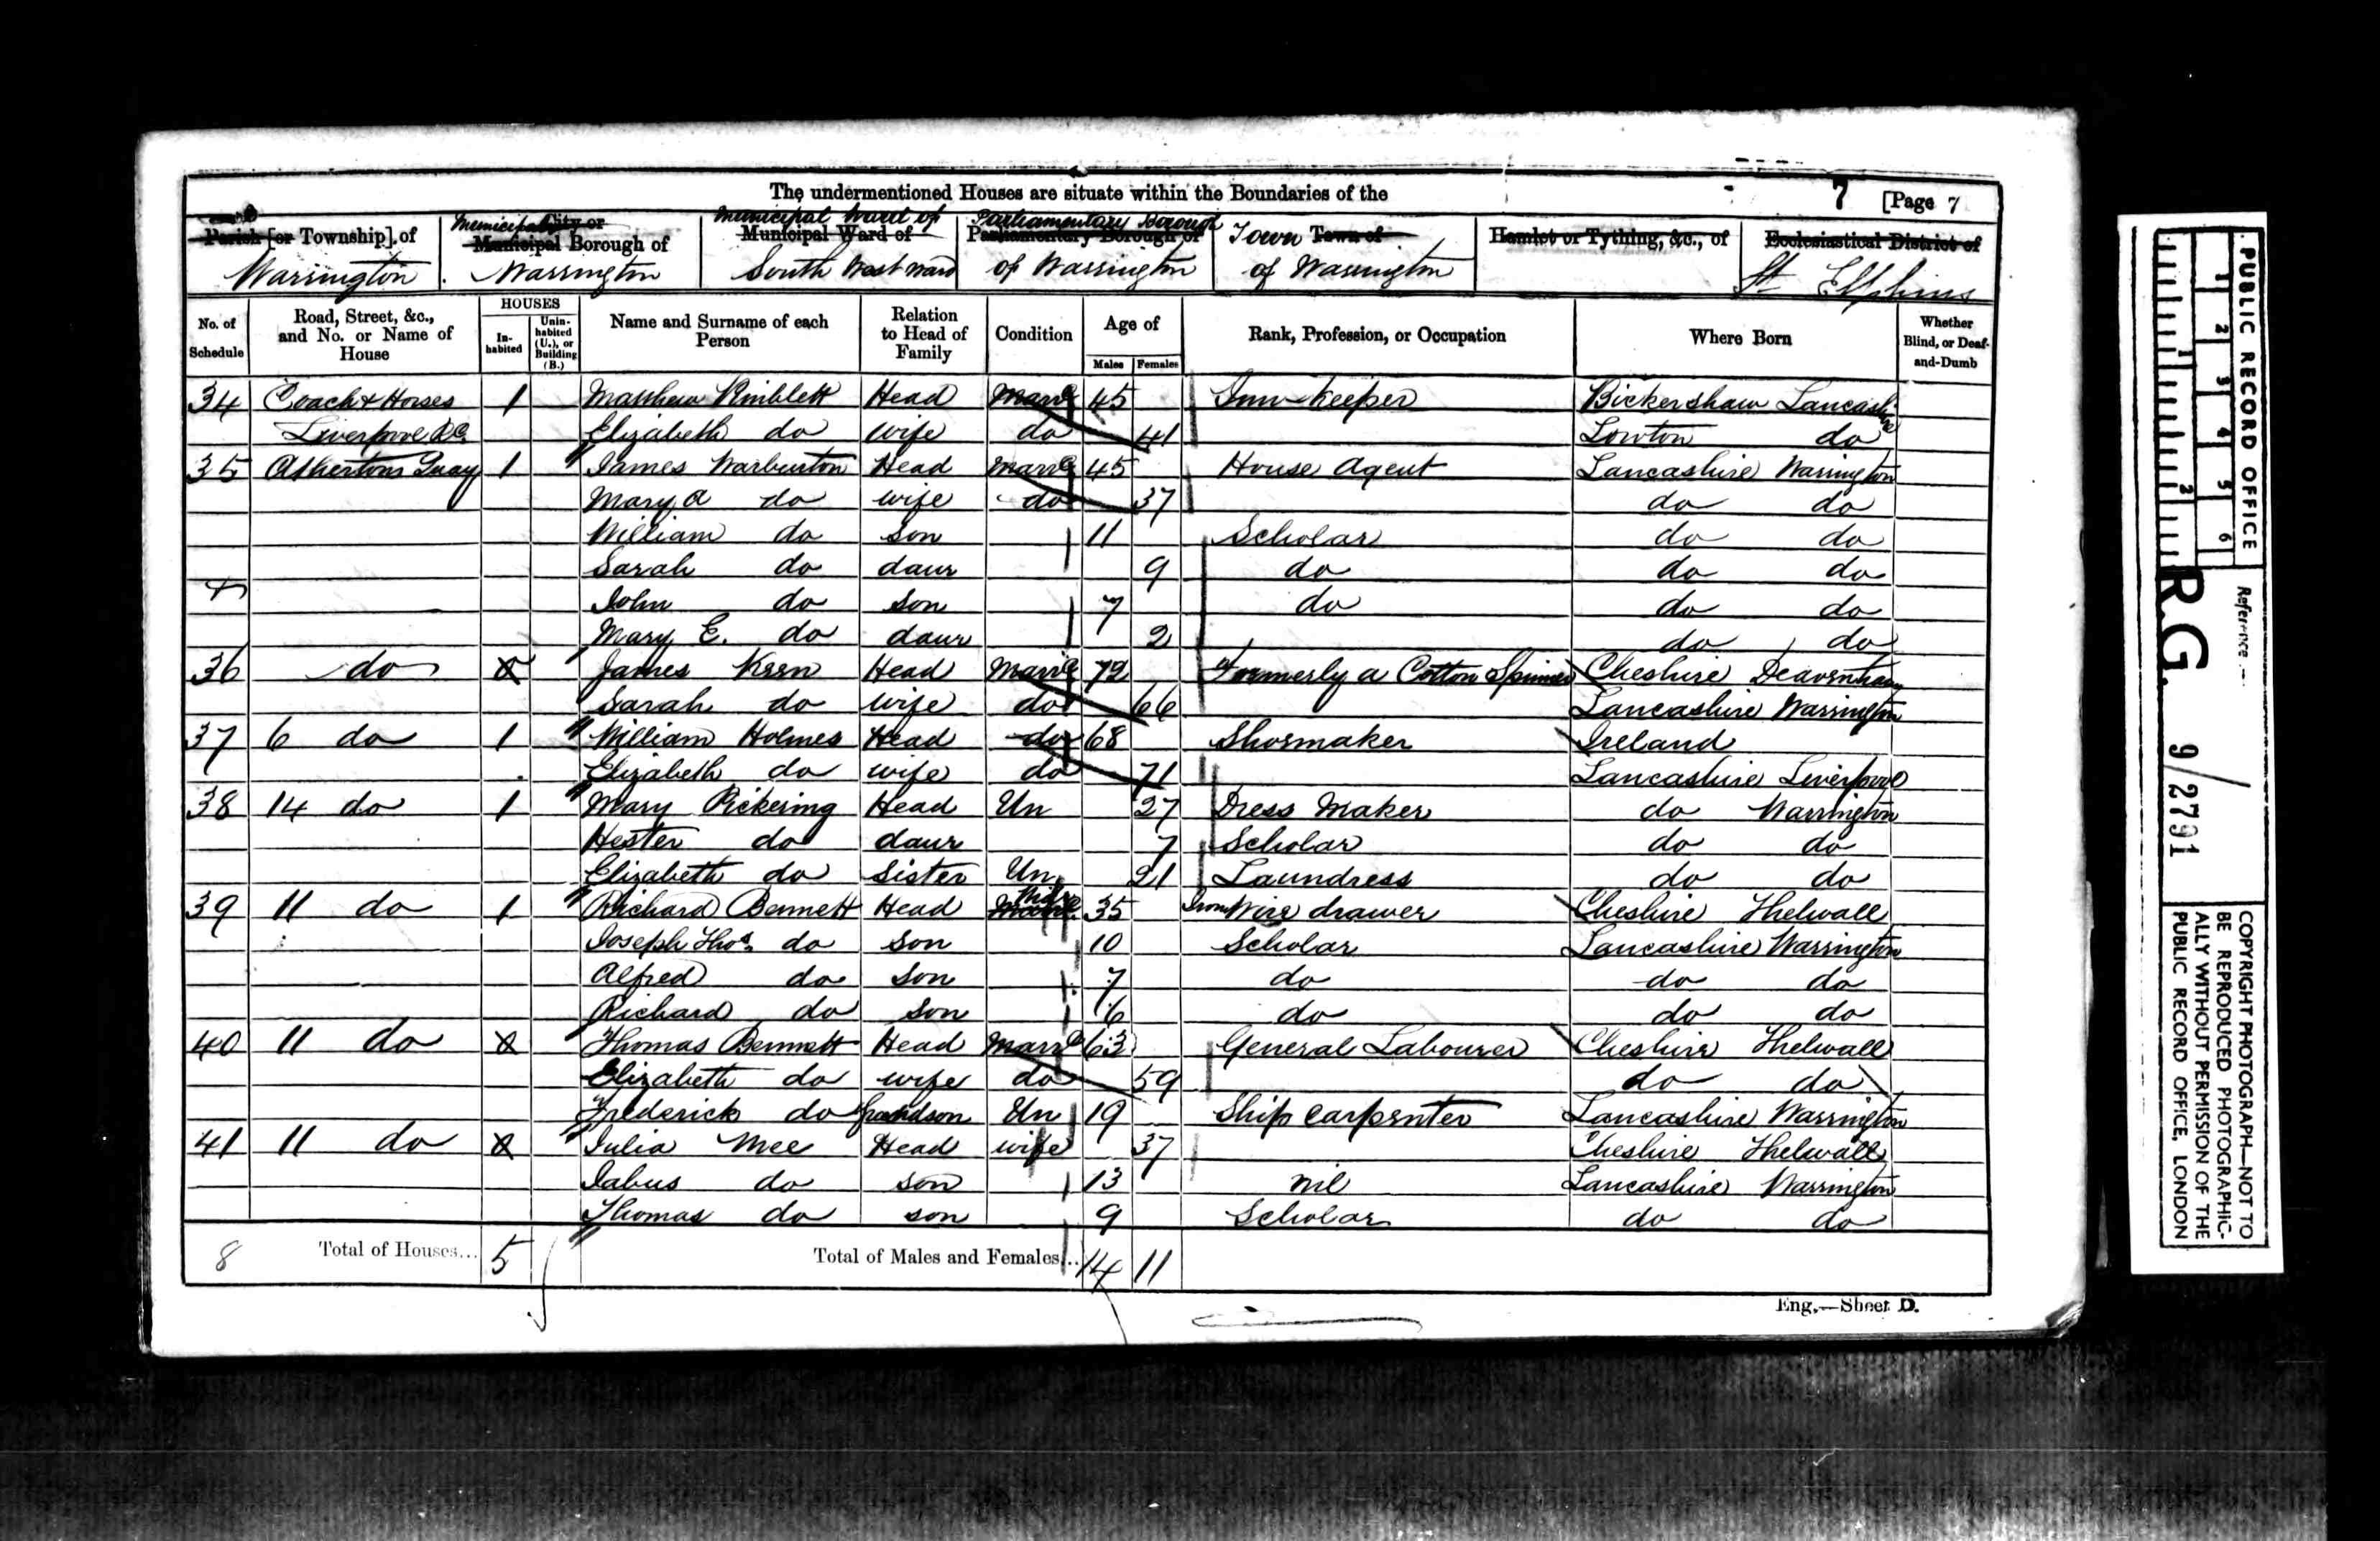 The undermentioned Houses are situate within the Boundaries of the
7 [Page 7
Parish [or Township] of
Municipal City or Municipal Borough of
Municipal Ward of Municipal Ward of
Parliamentary Borough Parliamentary Borough of
Town Town of
Hamlet or Tything, &c., of
Ecclesiastical District of
Warrington
Warrington
South West Ward
of Warrington
of Warrington
St Elphins
No. of Schedule
Road, Street, &c., and No. or Name of House
HOUSES
In-habited
Unin-habited (U.), or Building (B.)
Name and Surname of each Person
Relation to Head of Family
Condition
Age of
Males Females
Rank, Profession, or Occupation
Where Born
Whether Blind, or Deaf-and-Dumb
34 Coach & Horses 1 Matthew Rimblett Head Marrd 45 Inn-keeper Bickershaw Lancashire
Liverpool Rd Elizabeth do wife do 41 Lowton do
35 Athertons Quay 1 James Warburton Head Marrd 45 House Agent Lancashire Warrington
Mary A do wife do 37 do do
William do son 11 Scholar do do
Sarah do daur 9 do do do
John do son 7 do do do
Mary E. do daur 2 do do
36 do James Head Marrd 72 Formerly a Cotton Spinner Cheshire Deavenham
Sarah do wife do 66 Lancashire Warrington
37 6 do 1 William Holmes Head do 68 Shoemaker Ireland
Elizabeth do wife do 71 Lancashire Liverpool
38 14 do 1 Mary Pickering Head Un 27 Dress Maker do Warrington
Hester do daur 7 Scholar do do
Elizabeth do Sister Un 21 Laundress do do
39 11 do 1 Richard Bennett Head Widr 35 Iron Wire drawer Cheshire Thelwall
Joseph Thos. do son 10 Scholar Lancashire Warrington
Alfred do son 7 do do do
Richard do son 6 do do do
40 11 do Thomas Bennett Head Marrd 63 General Labourer Cheshire Thelwall
Elizabeth do wife do 59 do do
Frederick do Grandson Un 19 Ship Carpenter Lancashire Warrington
41 11 do Julia Mee Head wife 37 Cheshire Thelwall
Jabus do son 13 nil Lancashire Warrington
Thomas do son 9 Scholar do do
8 Total of Houses... 5 Total of Males and Females... 14 11
Eng.—Sheet D.
PUBLIC RECORD OFFICE
1 2 3 4 5 6
1 2
Reference :-
R.G. 9/2791
COPYRIGHT PHOTOGRAPH—NOT TO
BE REPRODUCED PHOTOGRAPHIC-
ALLY WITHOUT PERMISSION OF THE
PUBLIC RECORD OFFICE, LONDON